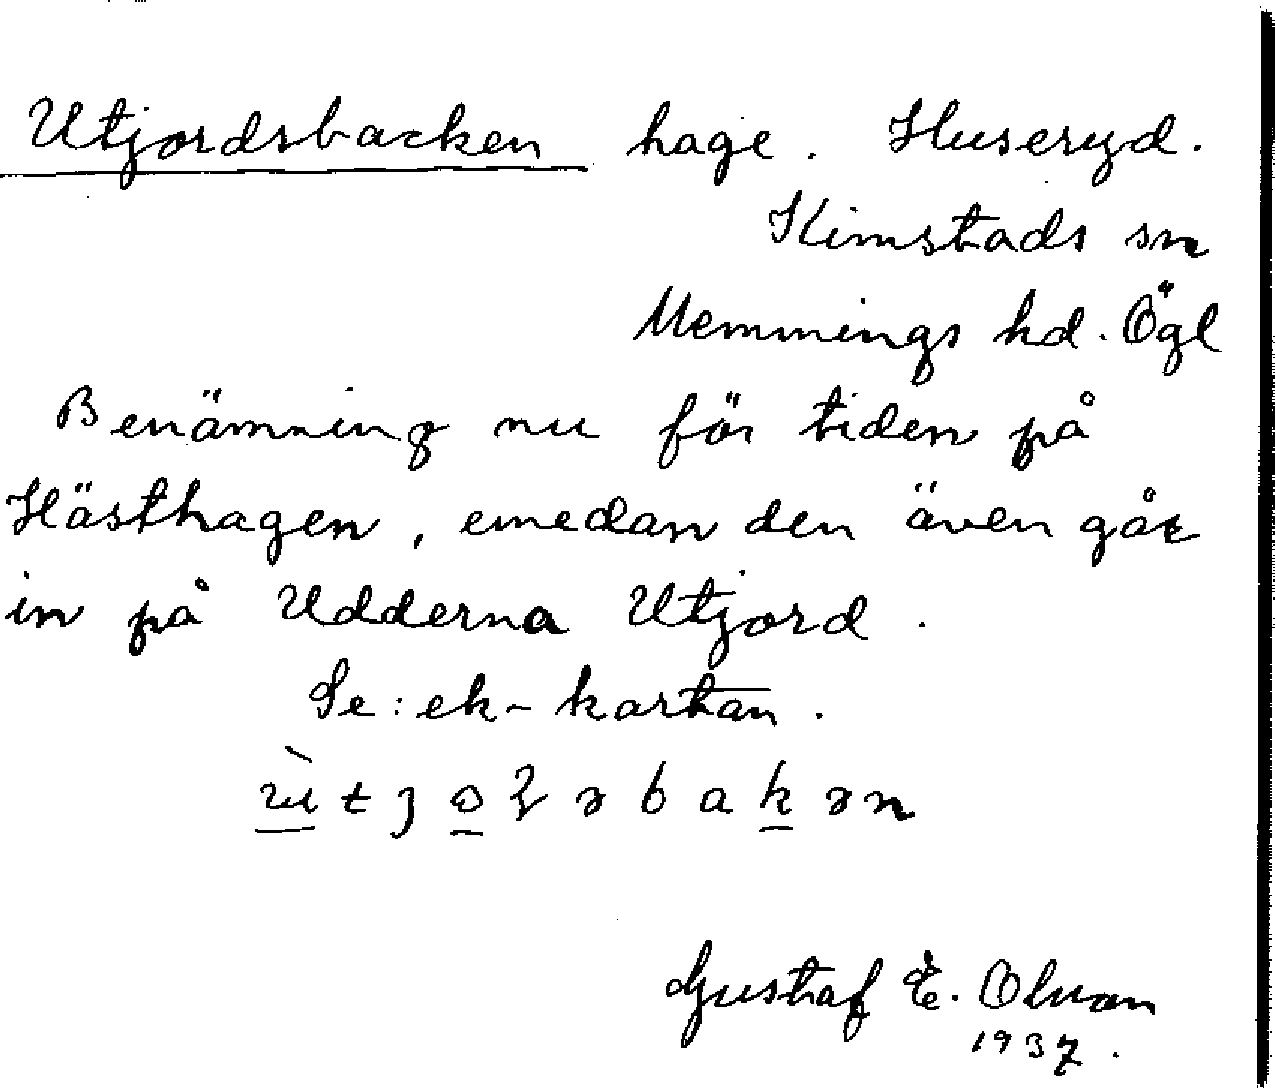 Utjordsbacken hage. Huseryd.
Kimstads sn
Memmings hd. Ögl
Benämning nu för tiden på
Hästhagen, emedan den även går
in på Udderna Utjord.
Se: ek-kartan.
Gustaf E. Olson
1937.